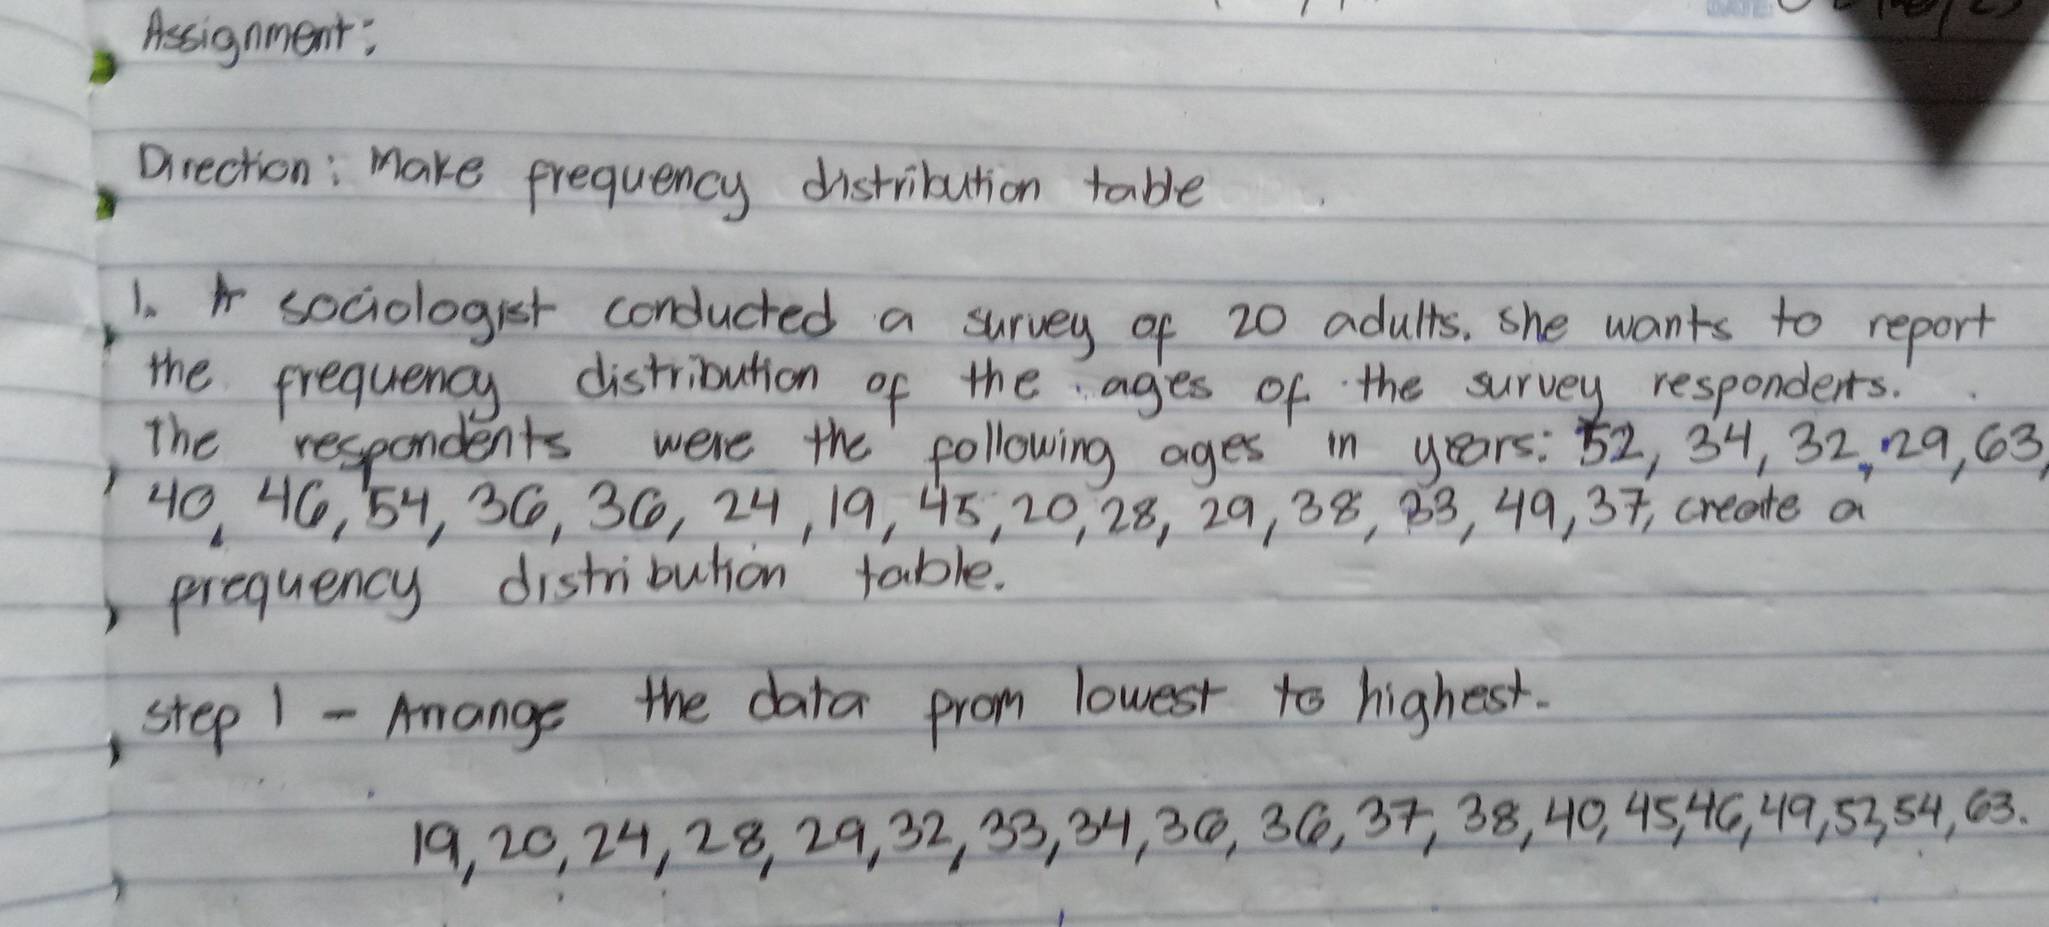 Assignment:
Direction: Make frequency distribution table
1. A sociologist conducted a survey of 20 adults. She wants to report
the frequency distribution of the ages of the survey responderts.
The respondents were the following ages in years: 52, 34, 32, 29, 63,
40, 46, 54, 36, 36, 24, 19, 45, 20, 28, 29, 38, 33, 49, 37, create a
frequency distribution table.
step 1 - Arrange the data from lowest to highest.
19, 20, 24, 28, 29, 32, 33, 34, 36, 36, 37, 38, 40, 45, 46, 49, 52, 54, 63.